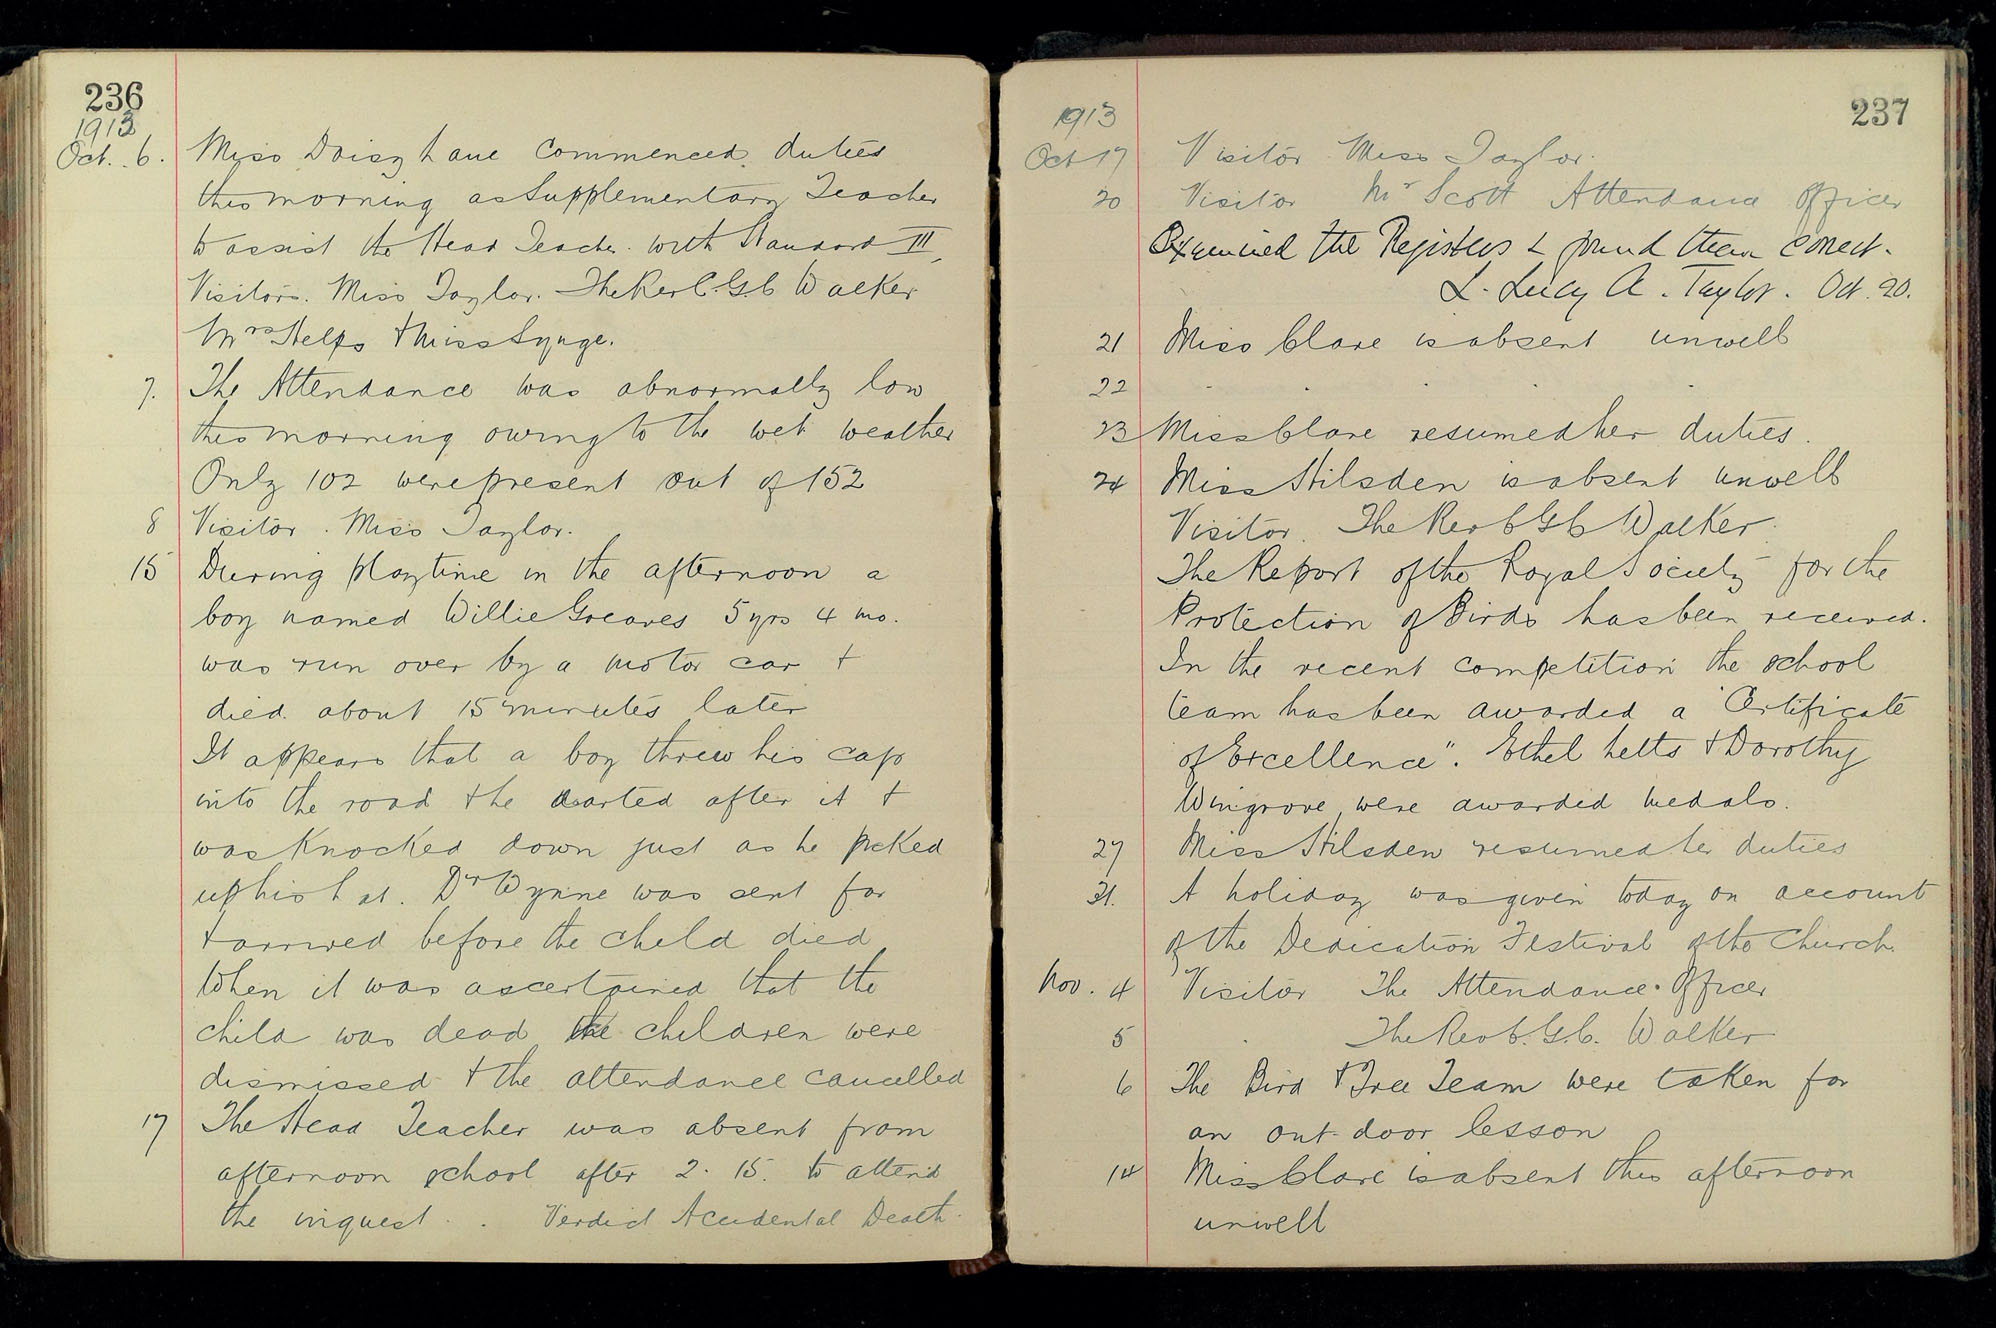 236
1913
Oct. 6. Miss Daisy Lane commenced duties
this morning as Supplementary Teacher
to assist the Head Teacher with Standard III,
Visitors. Miss Taylor. The Rev C.G.C Walker
Mrs Helps & Miss Synge.
7. The Attendance was abnormally low
this morning owing to the wet weather
Only 102 were present out of 152
8 Visitor. Miss Taylor.
15 During playtime in the afternoon a
boy named Willie Greaves 5 yrs 4 mo.
was run over by a motor car &
died about 15 minutes later
It appears that a boy threw his cap
into the road & he darted after it &
was knocked down just as he picked
up his hat. Dr Wynne was sent for
& arrived before the child died
When it was ascertained that the
child was dead the children were
dismissed & the attendance cancelled
17 The Head Teacher was absent from
afternoon school after 2.15. to attend
the inquest. . Verdict Accidental Death.
237
1913
Oct 17 Visitor Miss Taylor.
20 Visitor Mr Scott Attendance Officer
Examined the Registers & found them correct.
L. Lucy A. Taylor. Oct. 20.
21 Miss Clare is absent unwell
22 . . .
23 Miss Clare resumed her duties.
24 Miss Hilsden is absent unwell
Visitor. The Rev C G C Walker.
The Report of the Royal Society for the
Protection of Birds has been received.
In the recent competition the school
team has been awarded a "Certificate
of Excellence". Ethel Letts & Dorothy
Wingrove were awarded medals.
27 Miss Hilsden resumed her duties
31. A holiday was given today on account
of the Dedication Festival of the Church.
Nov. 4 Visitor The Attendance Officer
5 . The Rev C. G. C. Walker
6 The Bird & Tree Team were taken for
an out-door lesson
14 Miss Clare is absent this afternoon
unwell